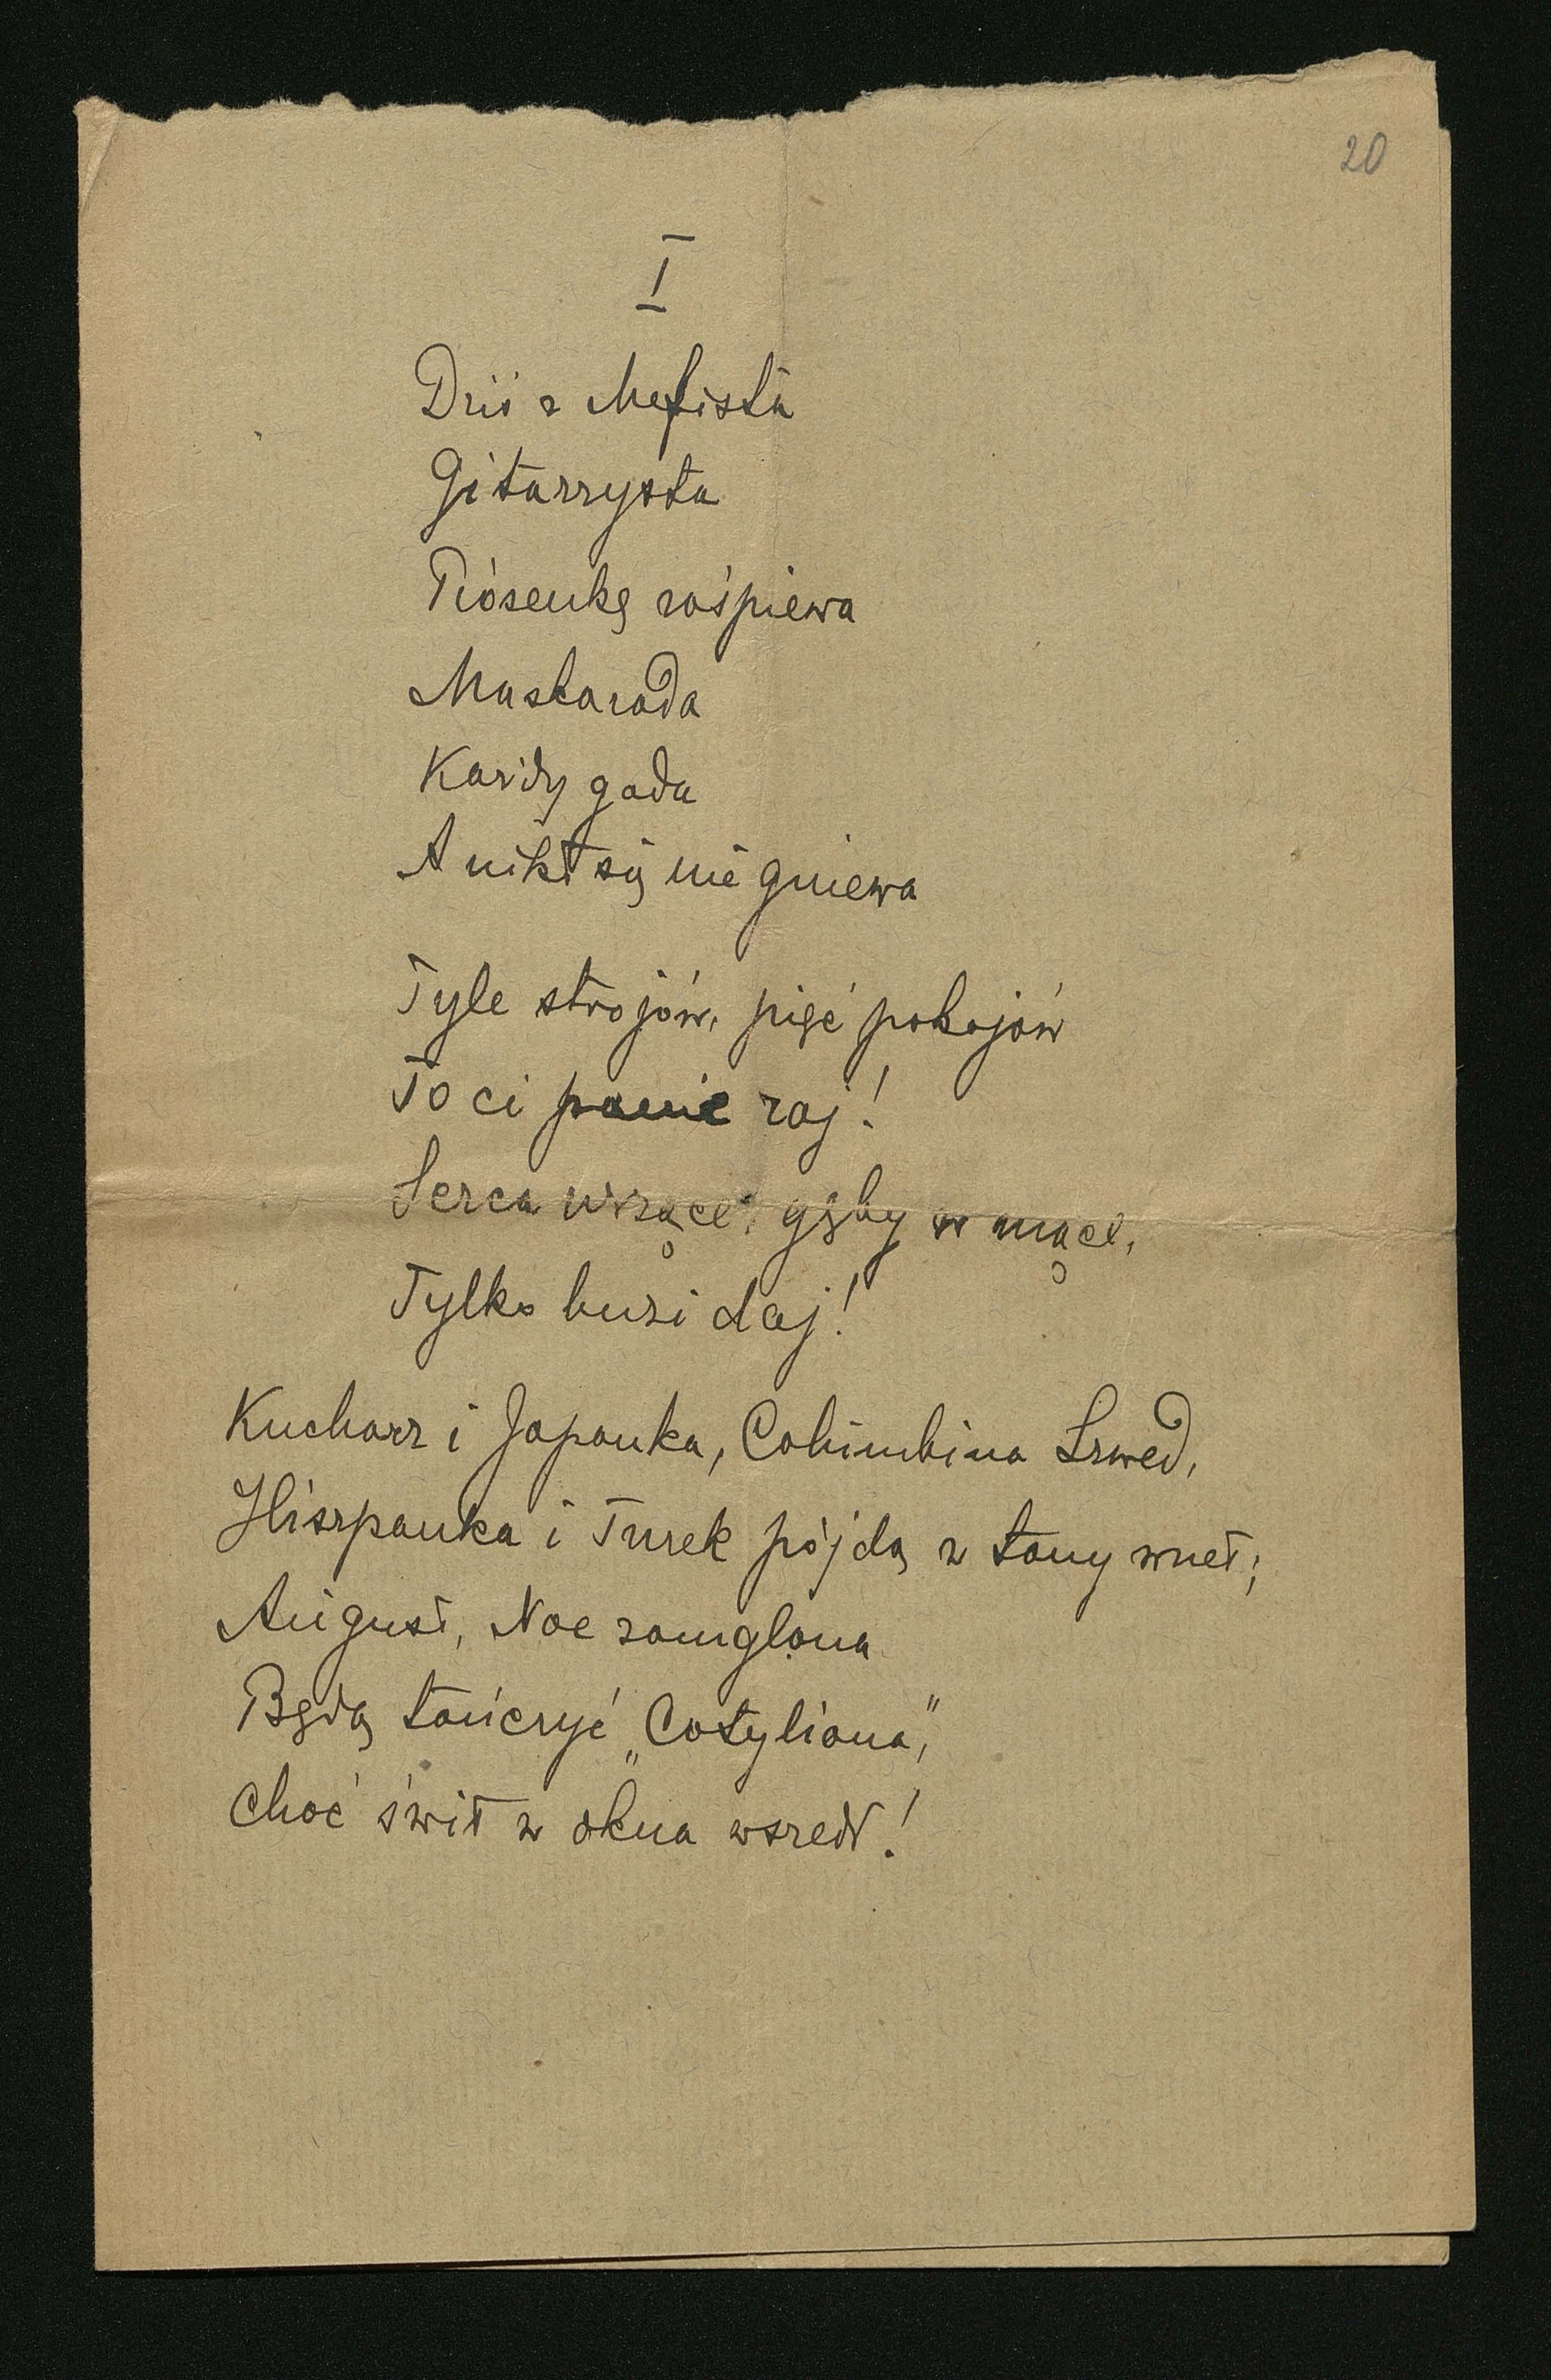 20
I
Dziś z Mefista
Gitarzysta
Piósenkę zaśpiewa
Maskarada
Każdy gada
A nikt się nie gniewa
Tyle strojów, pięć pokojów
To ci panie raj!
Serca wrzące, gęby w mące,
Tylko buzi daj!
Kucharz i Japonka, Columbina Szwed,
Hiszpanka i Turek pójdą w tany wnet;
August, Noe zamglona
Będą tańczyć „Cotyliona",
Choć świt w okna wszedł!